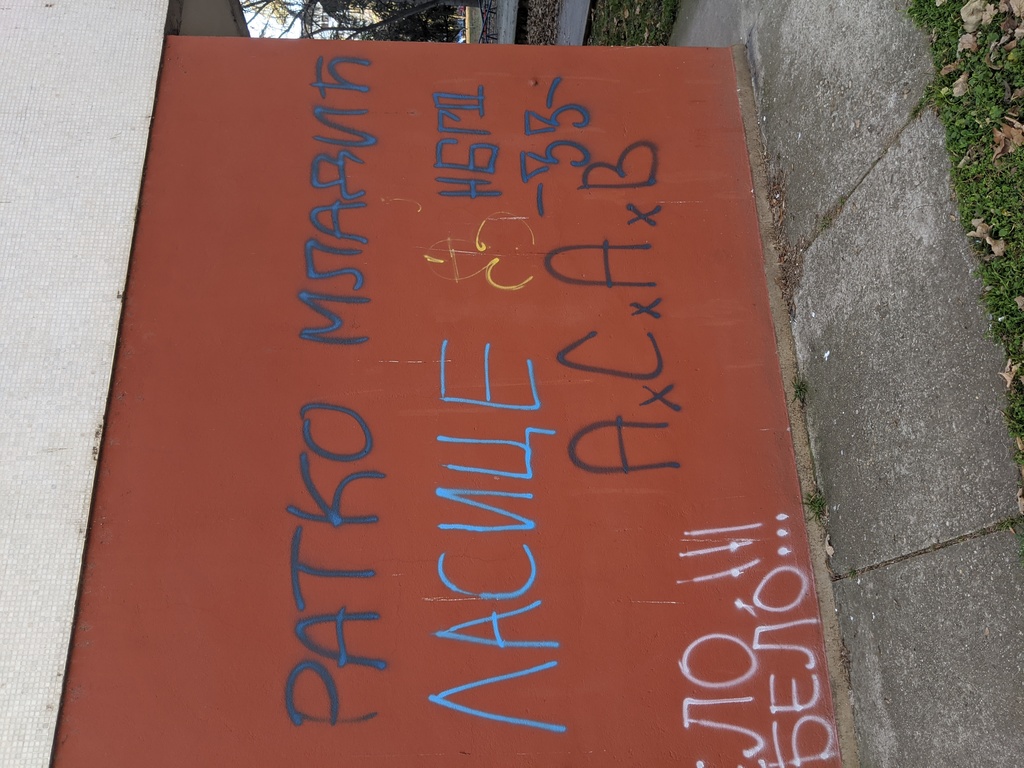 РАТКО МЛАДИЋ
ЛАСИЦЕ
НБГД
-33-
АxСxАxВ
ЕЛО,!!!
БЕЛО...